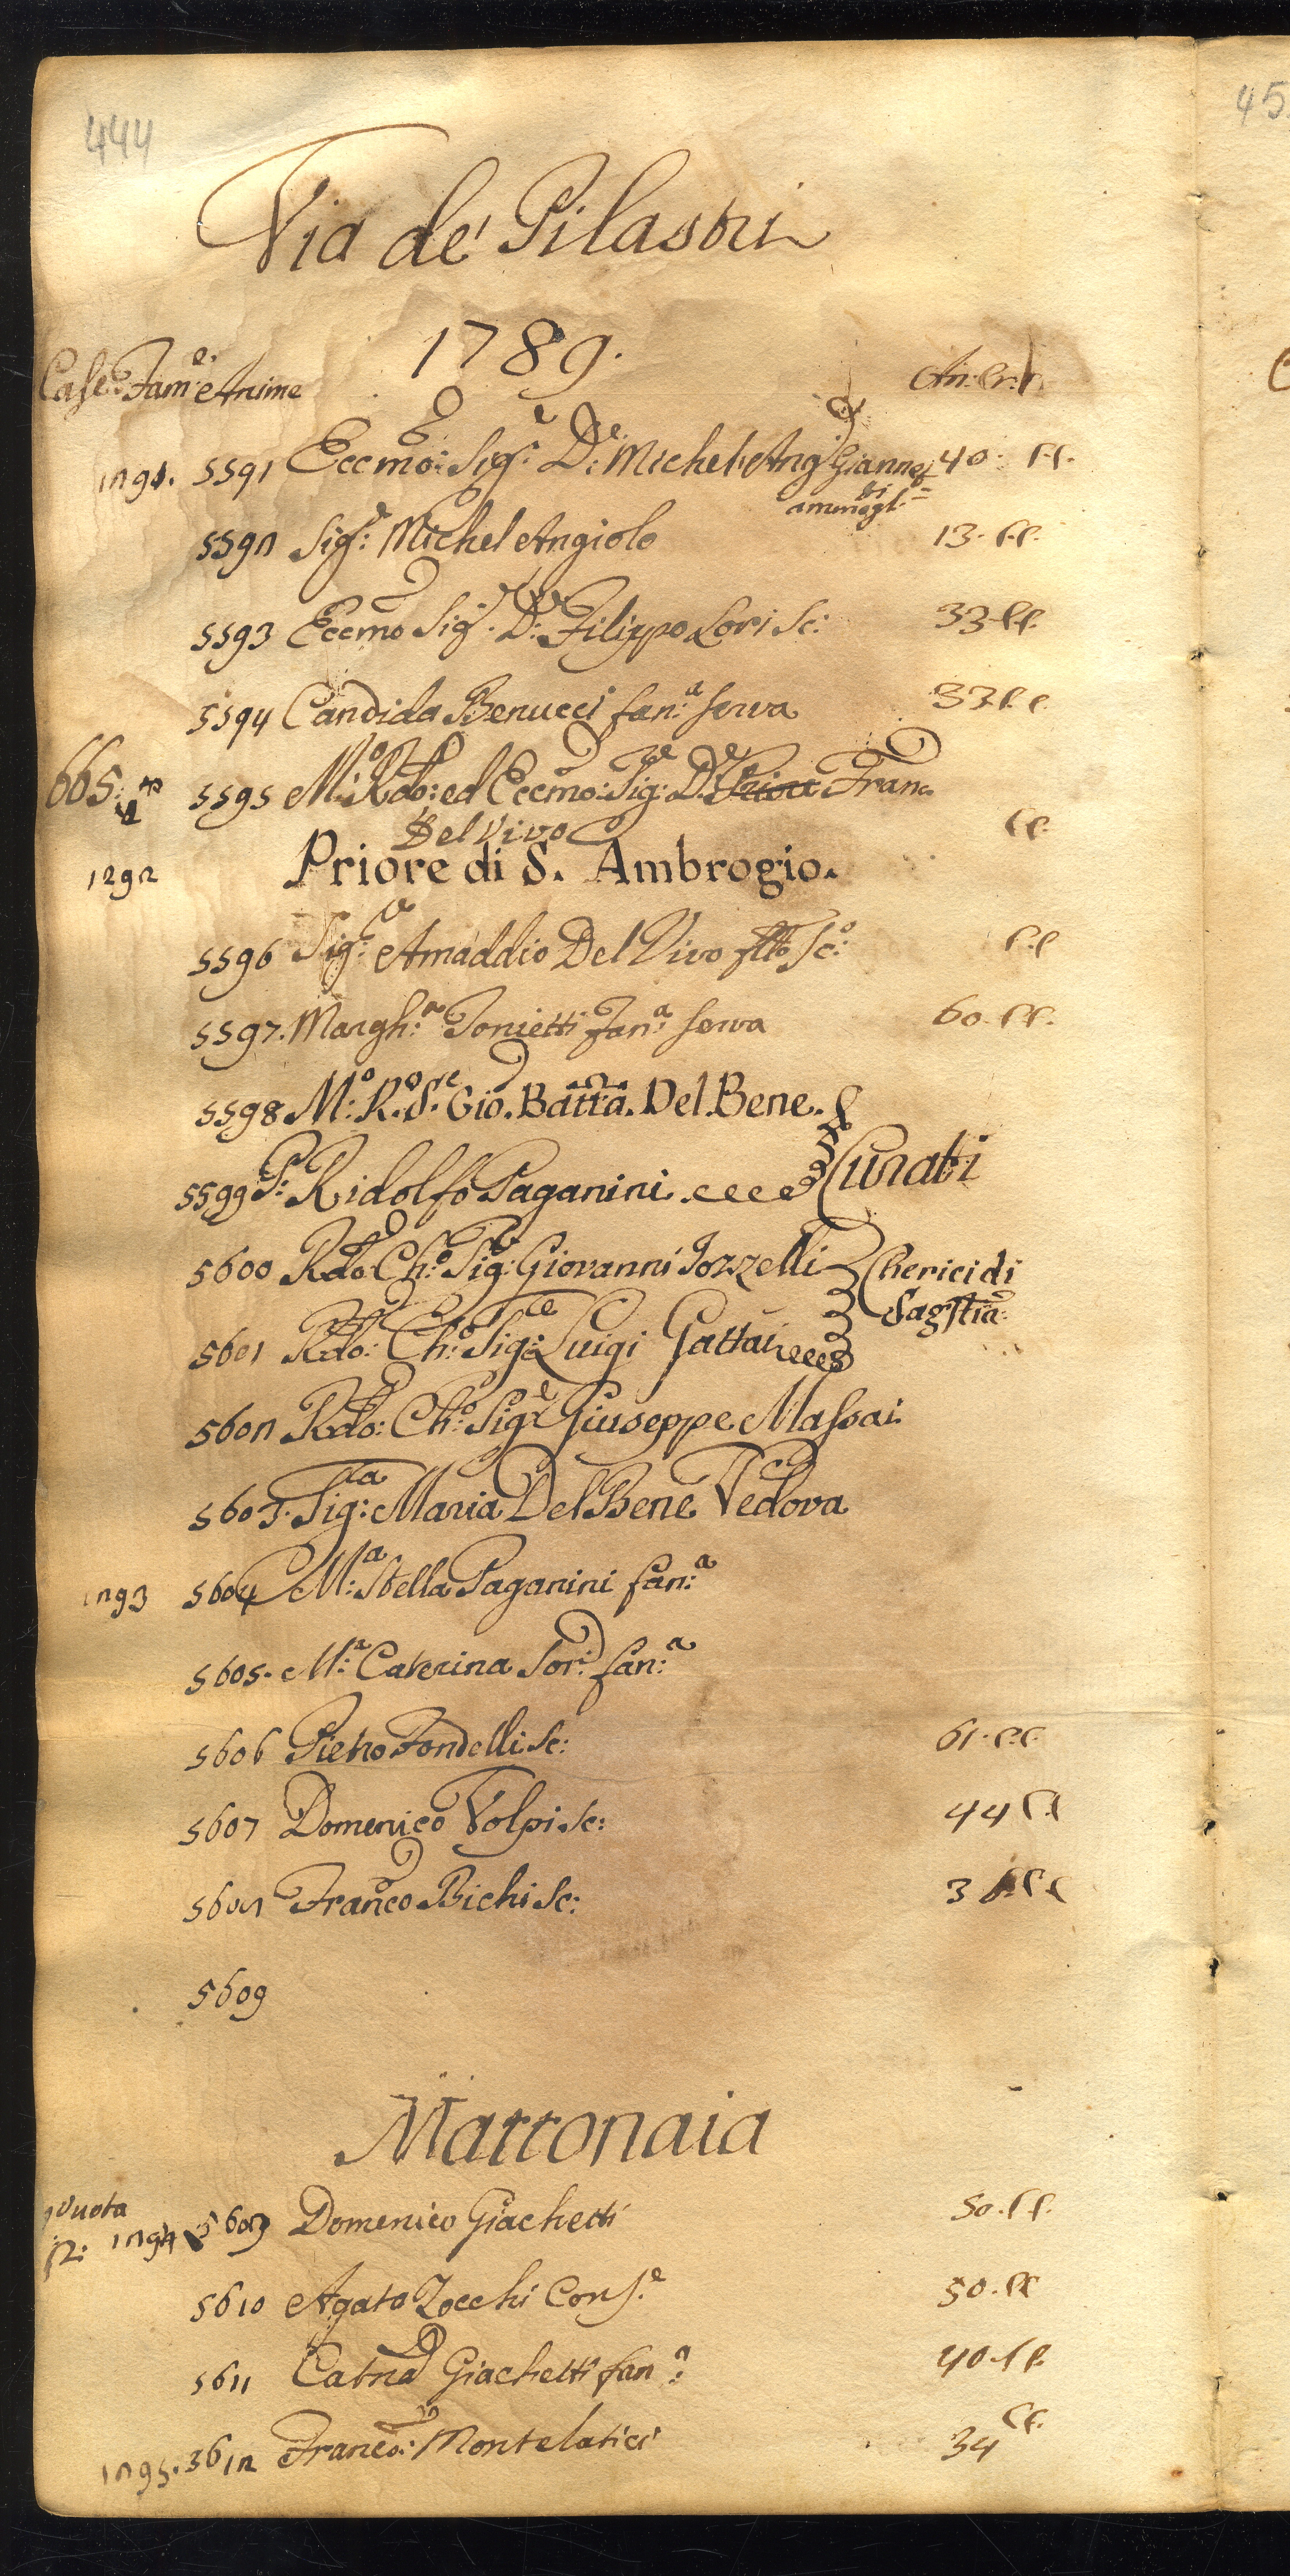 444
45
Via de' Pilastri
1789.
Case. Fam:e e Anime
An: Cr: 
1291. 5591 Eccmo: Sig:e D:e Michel Ang:o Giannetti 40. C.C.
ammogl:=
5592 Sig:e Michel Angiolo 13. C.C.
5593 Eccmo Sig:e D:e Filippo Lori Sc: 33. C.C.
5594 Candida Benucci fan:a serva 33 C.C.
665. 5595 M:o Rdo: ed Eccmo: Sig:e D:e Franc:
Del Vivo C.C.
1292 Priore di S. Ambrogio.
5596 Sig:e Amaddio Del Vivo fllo Sc:o C.C
5597. Margh:a Tonietti fan:a serva 60. C.C.
5598 M:o R:o S:e Gio. Batta. Del Bene.
Curati
5599 P: Ridolfo Paganini
5600 Rdo: Ch:o Sig:e Giovanni Jozzelli
Cherici di
Sagstia:
5601 Rdo: Ch:o Sig:e Luigi Gattai
5602 Rdo: Ch:o Sig:e Giuseppe Massai
5603. Sig:ra Maria Del Bene Vedova
1293 5604 M:a Stella Paganini fan:a
5605. M:a Caterina Sor: fan:a
5606 Pietro Fondelli Sc: 61. C.C.
5607 Domenico Volpi Sc: 44 C.C
5608 Franco Bichi Sc: 3 C.C
5609
Mattonaia
vuota
12: 1294 5609 Domenico Giachetti 50. C.C.
5610 Agata Zocchi Cons:e 50. C.C
5611 Catna Giachetti fan:a 40. C.C.
1295. 5612 Franco: Montelatici 34 C.C.